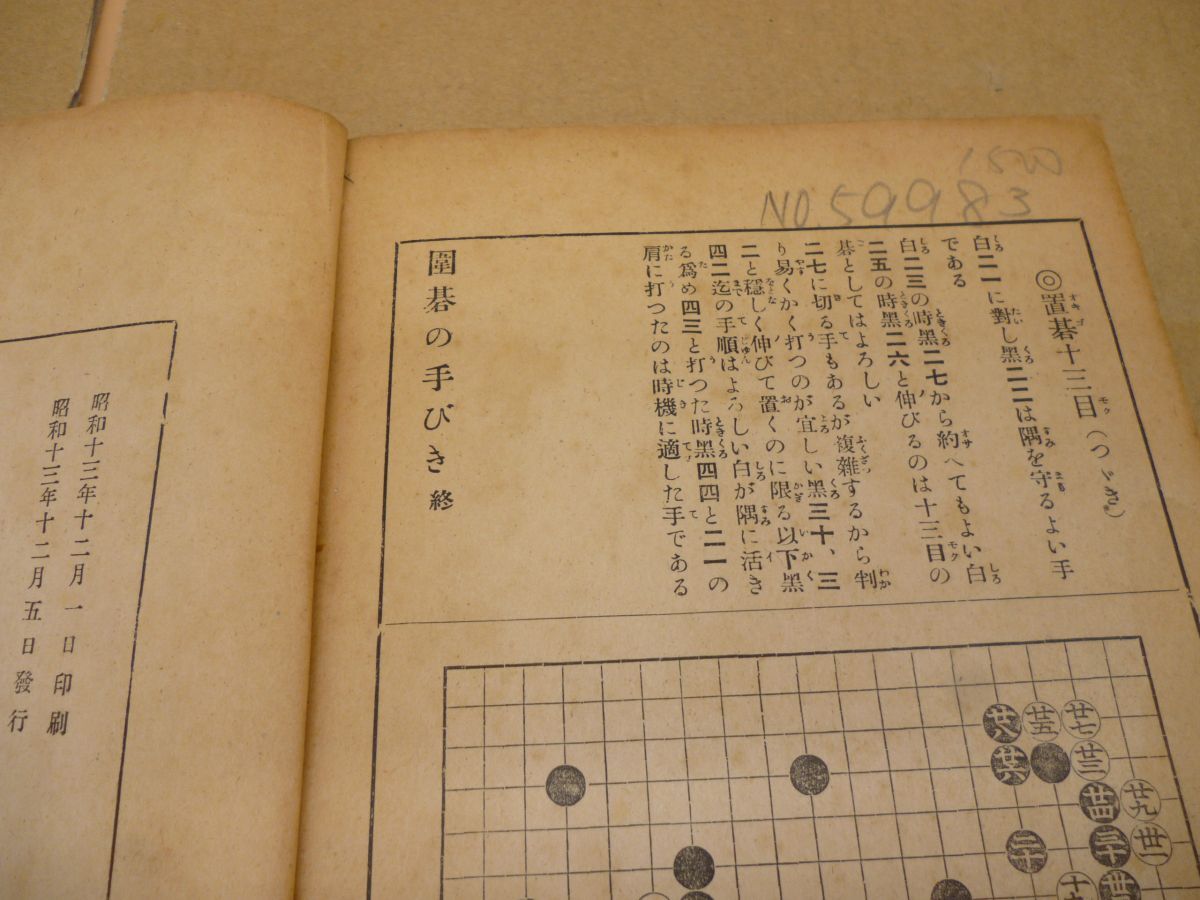 1500
NO.59983
◎置碁十三目(つゞき)
白二一に對し黑二二は隅を守るよい手
である
白二三の時黑二七から約へてもよい白
二五の時黑二六と伸びるのは十三目の
碁としてはよろしい
二七に切る手もあるが複雜するから判
り易くかく打つのが宜しい黑三十、三
二と穩しく伸びて置くのに限る以下黑
四二迄の手順はよろしい白が隅に活き
る爲め四三と打つた時黑四四と二一の
肩に打つたのは時機に適した手である
圍碁の手びき 終
昭和十三年十二月一日印刷
昭和十三年十二月五日發行
廿八 廿五 廿七
廿六 廿三
廿四 廿九
二十 三十 卅一